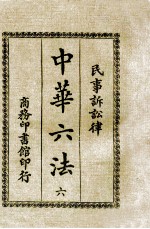 民事訴訟律
中華六法
六
商務印書館印行